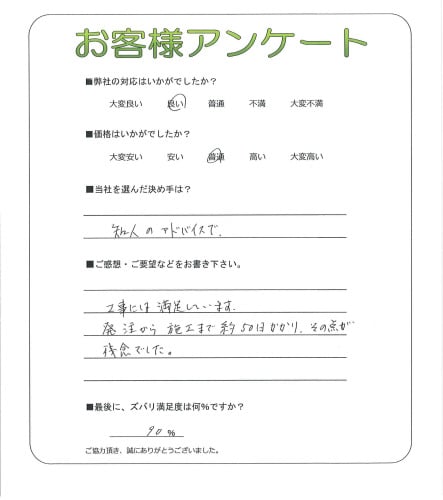 お客様アンケート
■弊社の対応はいかがでしたか？
大変良い 良い 普通 不満 大変不満
■価格はいかがでしたか？
大変安い 安い 普通 高い 大変高い
■当社を選んだ決め手は？
知人のアドバイスで.
■ご感想・ご要望などをお書き下さい。
工事には満足しています.
発注から施工まで約50日かかり、その点が
残念でした。
■最後に、ズバリ満足度は何％ですか？
90％
ご協力頂き、誠にありがとうございました。